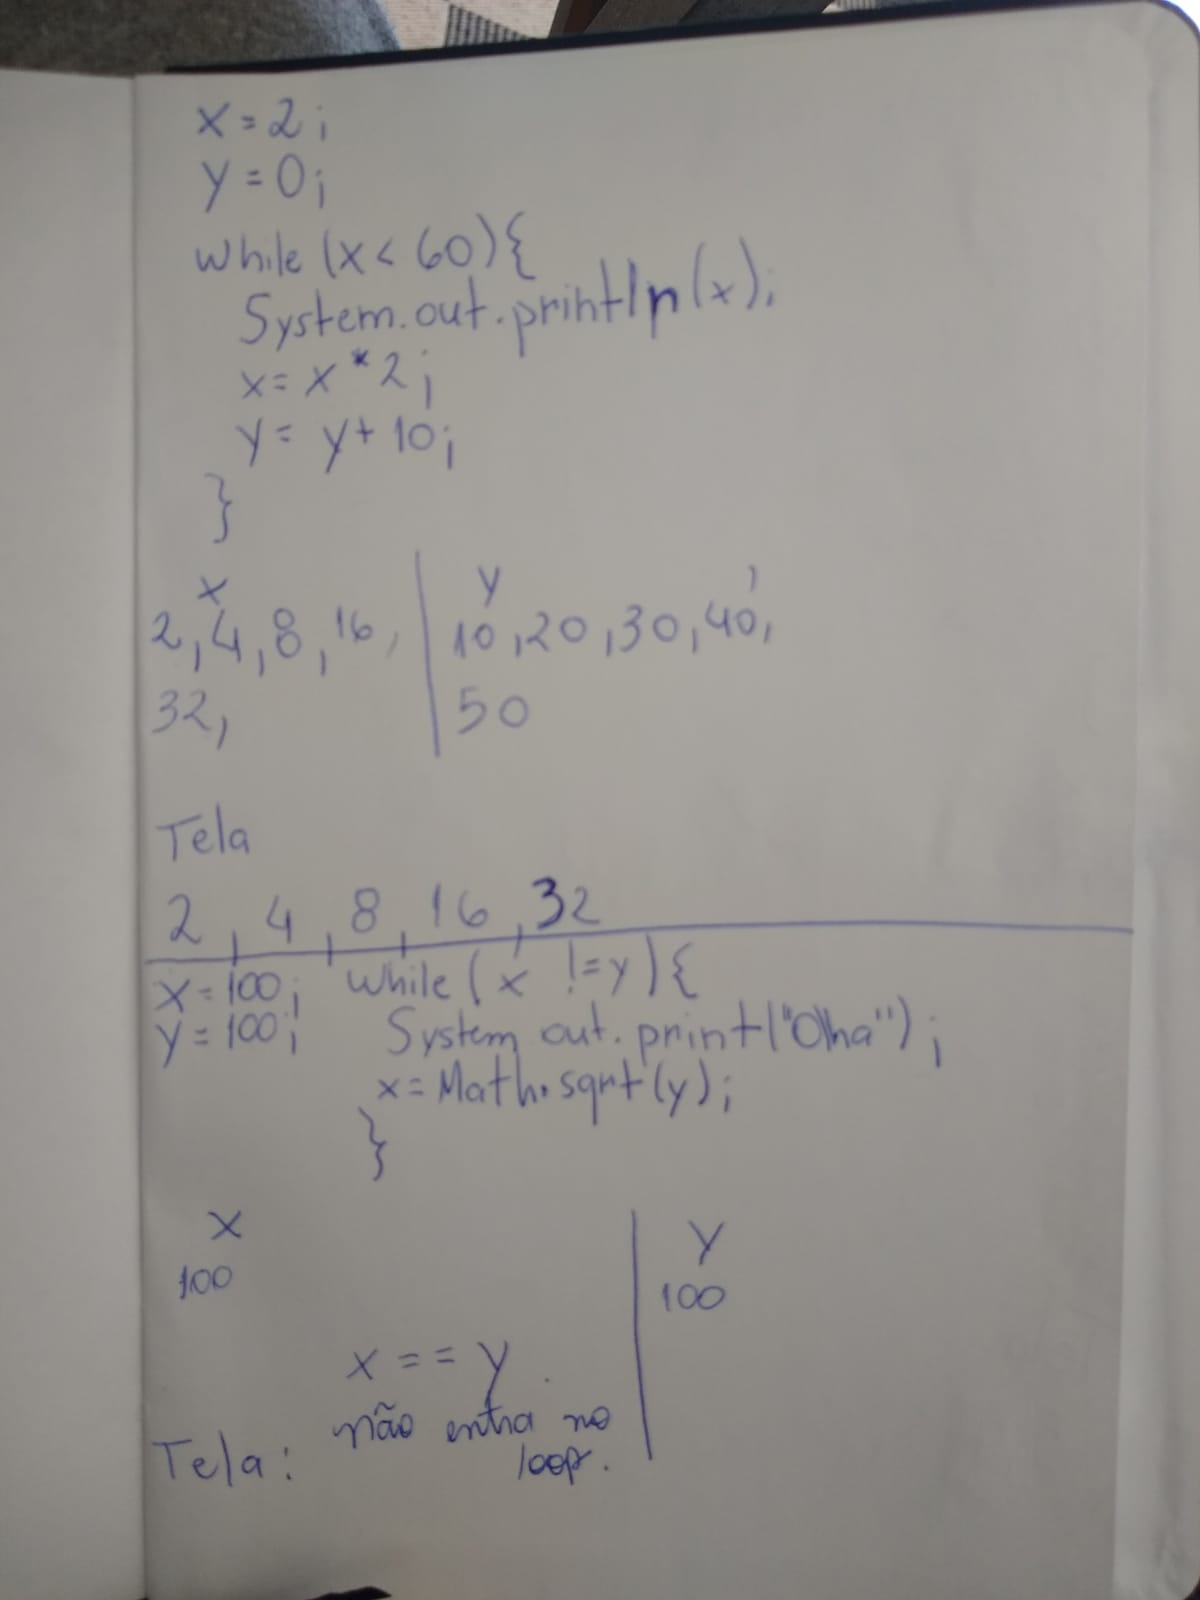 x=2;
y=0;
while (x < 60){
System.out.println(x);
x= x*2;
y= y+ 10;
}
x | y
2, 4, 8, 16, | 10, 20, 30, 40,
32, | 50
Tela
2, 4, 8, 16, 32
x=100; while (x !=y){
y=100; System out.print("Olha");
x=Math.sqrt(y);
}
x | y
100 | 100
x == y
não entra no
Tela: loop.